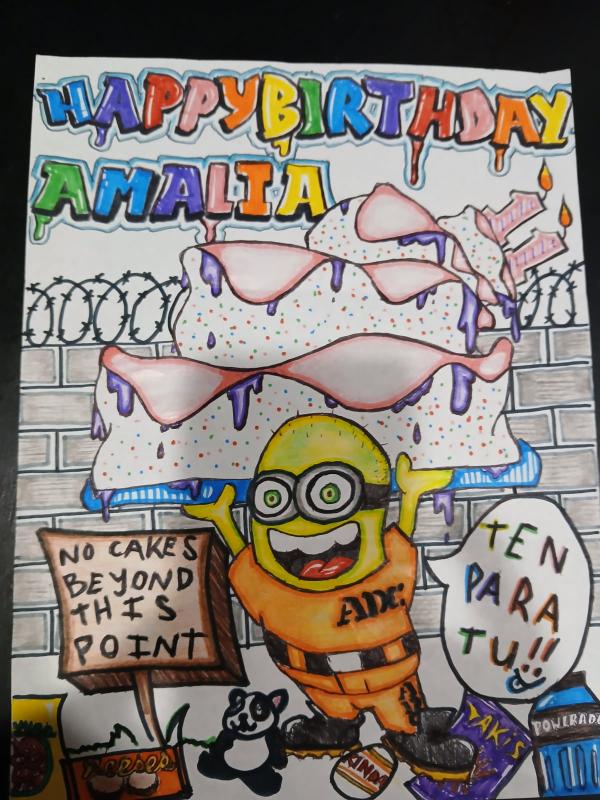 HAPPY BIRTHDAY
AMALIA
NO CAKES
BEYOND
THIS
POINT
ADC
TEN
PARA
TU!!
REESES
KINDER
TAKIS
POWERADE